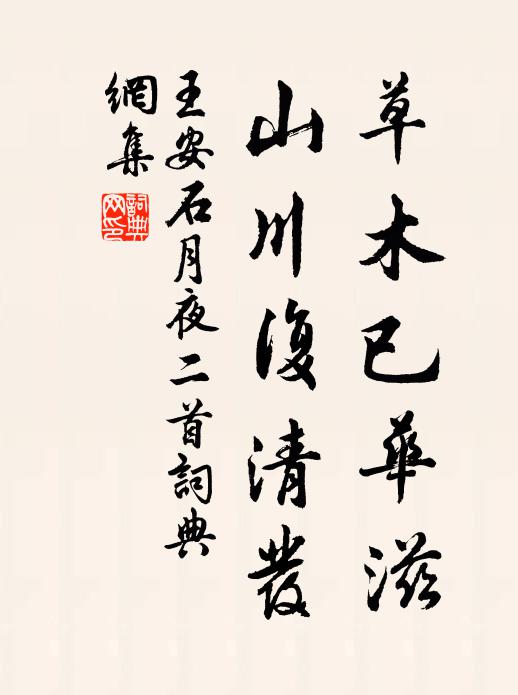 草木已華滋
山川復清發
王安石月夜二首詞典
網集
詞典
网印